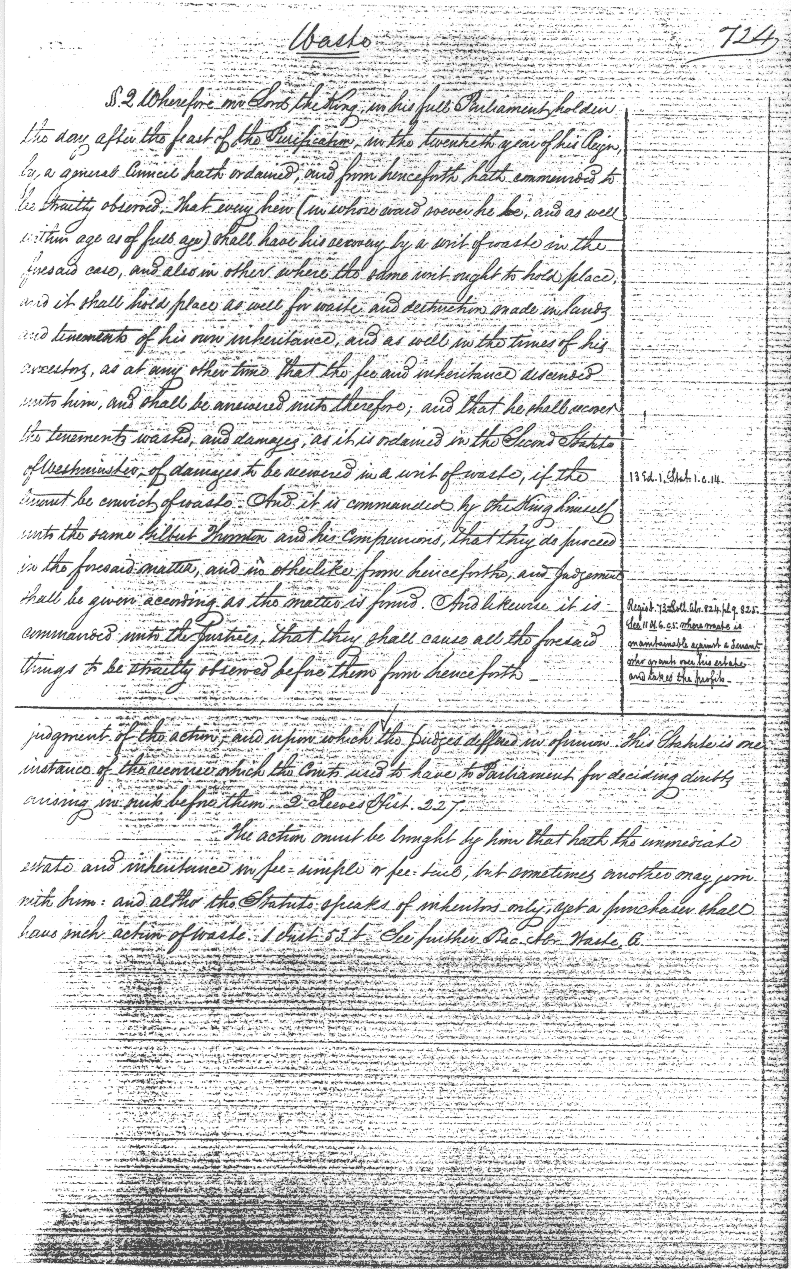 Waste 724
§ 2 Wherefore our Lord the King, in his full Parliament holden
the day after the feast of the Purification, in the twentieth year of his Reign,
by a general Council hath ordained, and from henceforth hath commanded to
be straitly observed, That every heir (in whose ward soever he be, and as well
within age as of full age) shall have his recovery by a writ of waste in the
foresaid case, and also in other where the same writ ought to hold place,
and it shall hold place as well for waste and destruction made in lands
and tenements of his own inheritance, and as well in the times of his
ancestors, as at any other time that the fee and inheritance descended
unto him, and shall be answered unto therefore; and that he shall recover
the tenements wasted, and damages, as it is ordained in the Second Statute
of Westminster, of damages to be recovered in a writ of waste, if the
tenant be convict of waste. And it is commanded by the King himself
unto the same Gilbert Thornton and his Companions, that they do proceed
in the foresaid matter, and in other like from henceforth, and Judgement
shall be given according as the matter is found. And likewise it is
commanded unto the Justices, that they shall cause all the foresaid
things to be straitly observed before them from henceforth _
13 Ed. 1. Stat. 1. c. 14.
Regist. 72. Roll. Abr. 824. pl. 9. 825.
See 11 H. 6. c. 5. where waste is
maintainable against a tenant
who grants over his estate
and takes the profits _
judgment of the action, and upon which the Judges differed in opinion. This Statute is one
instance of the recourse which the Courts used to have to Parliament for deciding doubts
arising in suits before them. 2 Reeves Hist. 227.
The action must be brought by him that hath the immediate
estate and inheritance in fee-simple or fee-tail, but sometimes another may join
with him: and altho' the Statute speaks of inheritors only, yet a purchaser shall
have such action of waste. 1 Inst. 53 b. See further Bac. Abr. Waste, G.